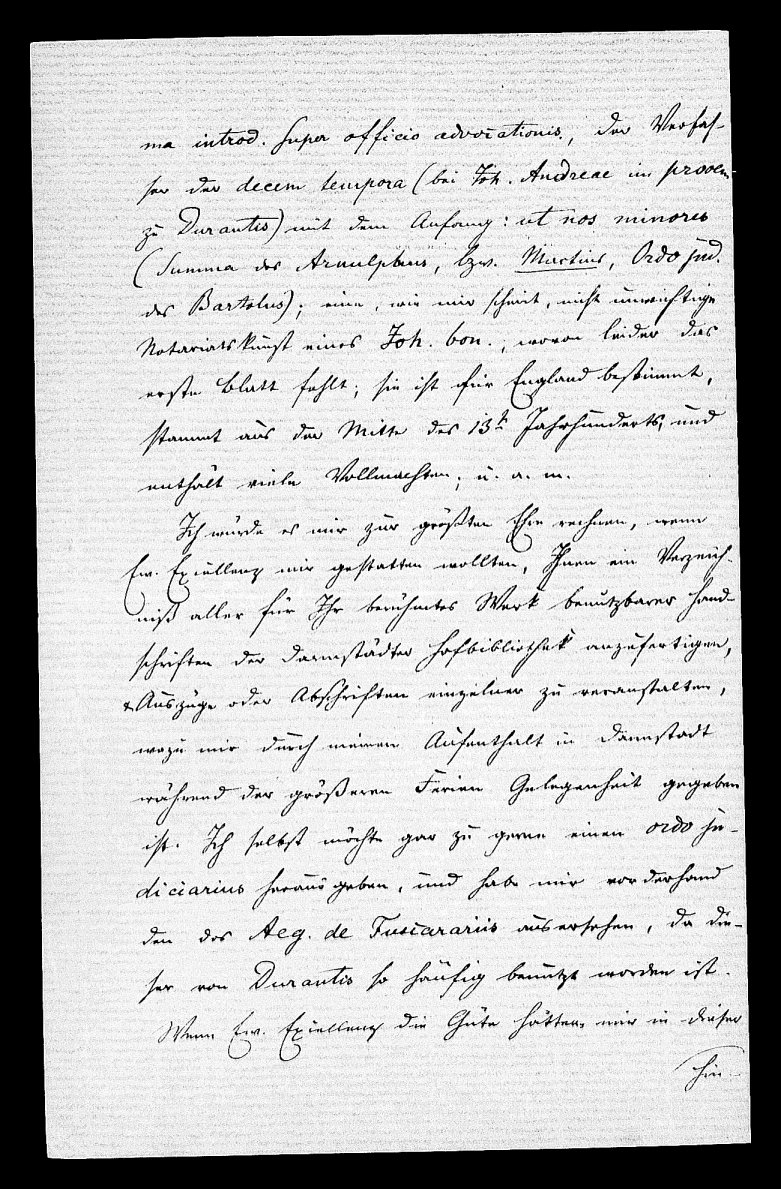 ma introd. super officio advocationis, der Verfas-
ser der decem tempora (bei Joh. Andreae im prooem
zu Durantis) mit dem Anfang: ut nos minores
(Summa des Arnulphus, bzw. Martins, Ordo jud.
des Bartolus); eine, wie mir scheint, nicht unwichtige
Notariatskunst eines Joh. bon., wovon leider das
erste Blatt fehlt; sie ist für England bestimmt,
stammt aus der Mitte des 13t Jahrhunderts, und
enthält viele Vollmachten; u. a. m.
Ich würde es mir zur größten Ehre rechnen, wenn
Ew. Excellenz mir gestatten wollten, Ihnen ein Verzeich-
niß aller für Ihr berühmtes Werk benutzbarer Hand-
schriften der Darmstädter Hofbibliothek anzufertigen,
Auszüge oder Abschriften einzelner zu veranstalten,
wozu mir durch meinen Aufenthalt in Darmstadt
während der größeren Ferien Gelegenheit gegeben
ist. Ich selbst möchte gar zu gerne einen ordo ju-
diciarius herausgeben, und habe mir vorderhand
den des Aeg. de Fuscarariis ausersehen, da die-
ser von Durantis so häufig benutzt worden ist.
Wenn Ew. Excellenz die Güte hätten, mir in dieser
Hin-